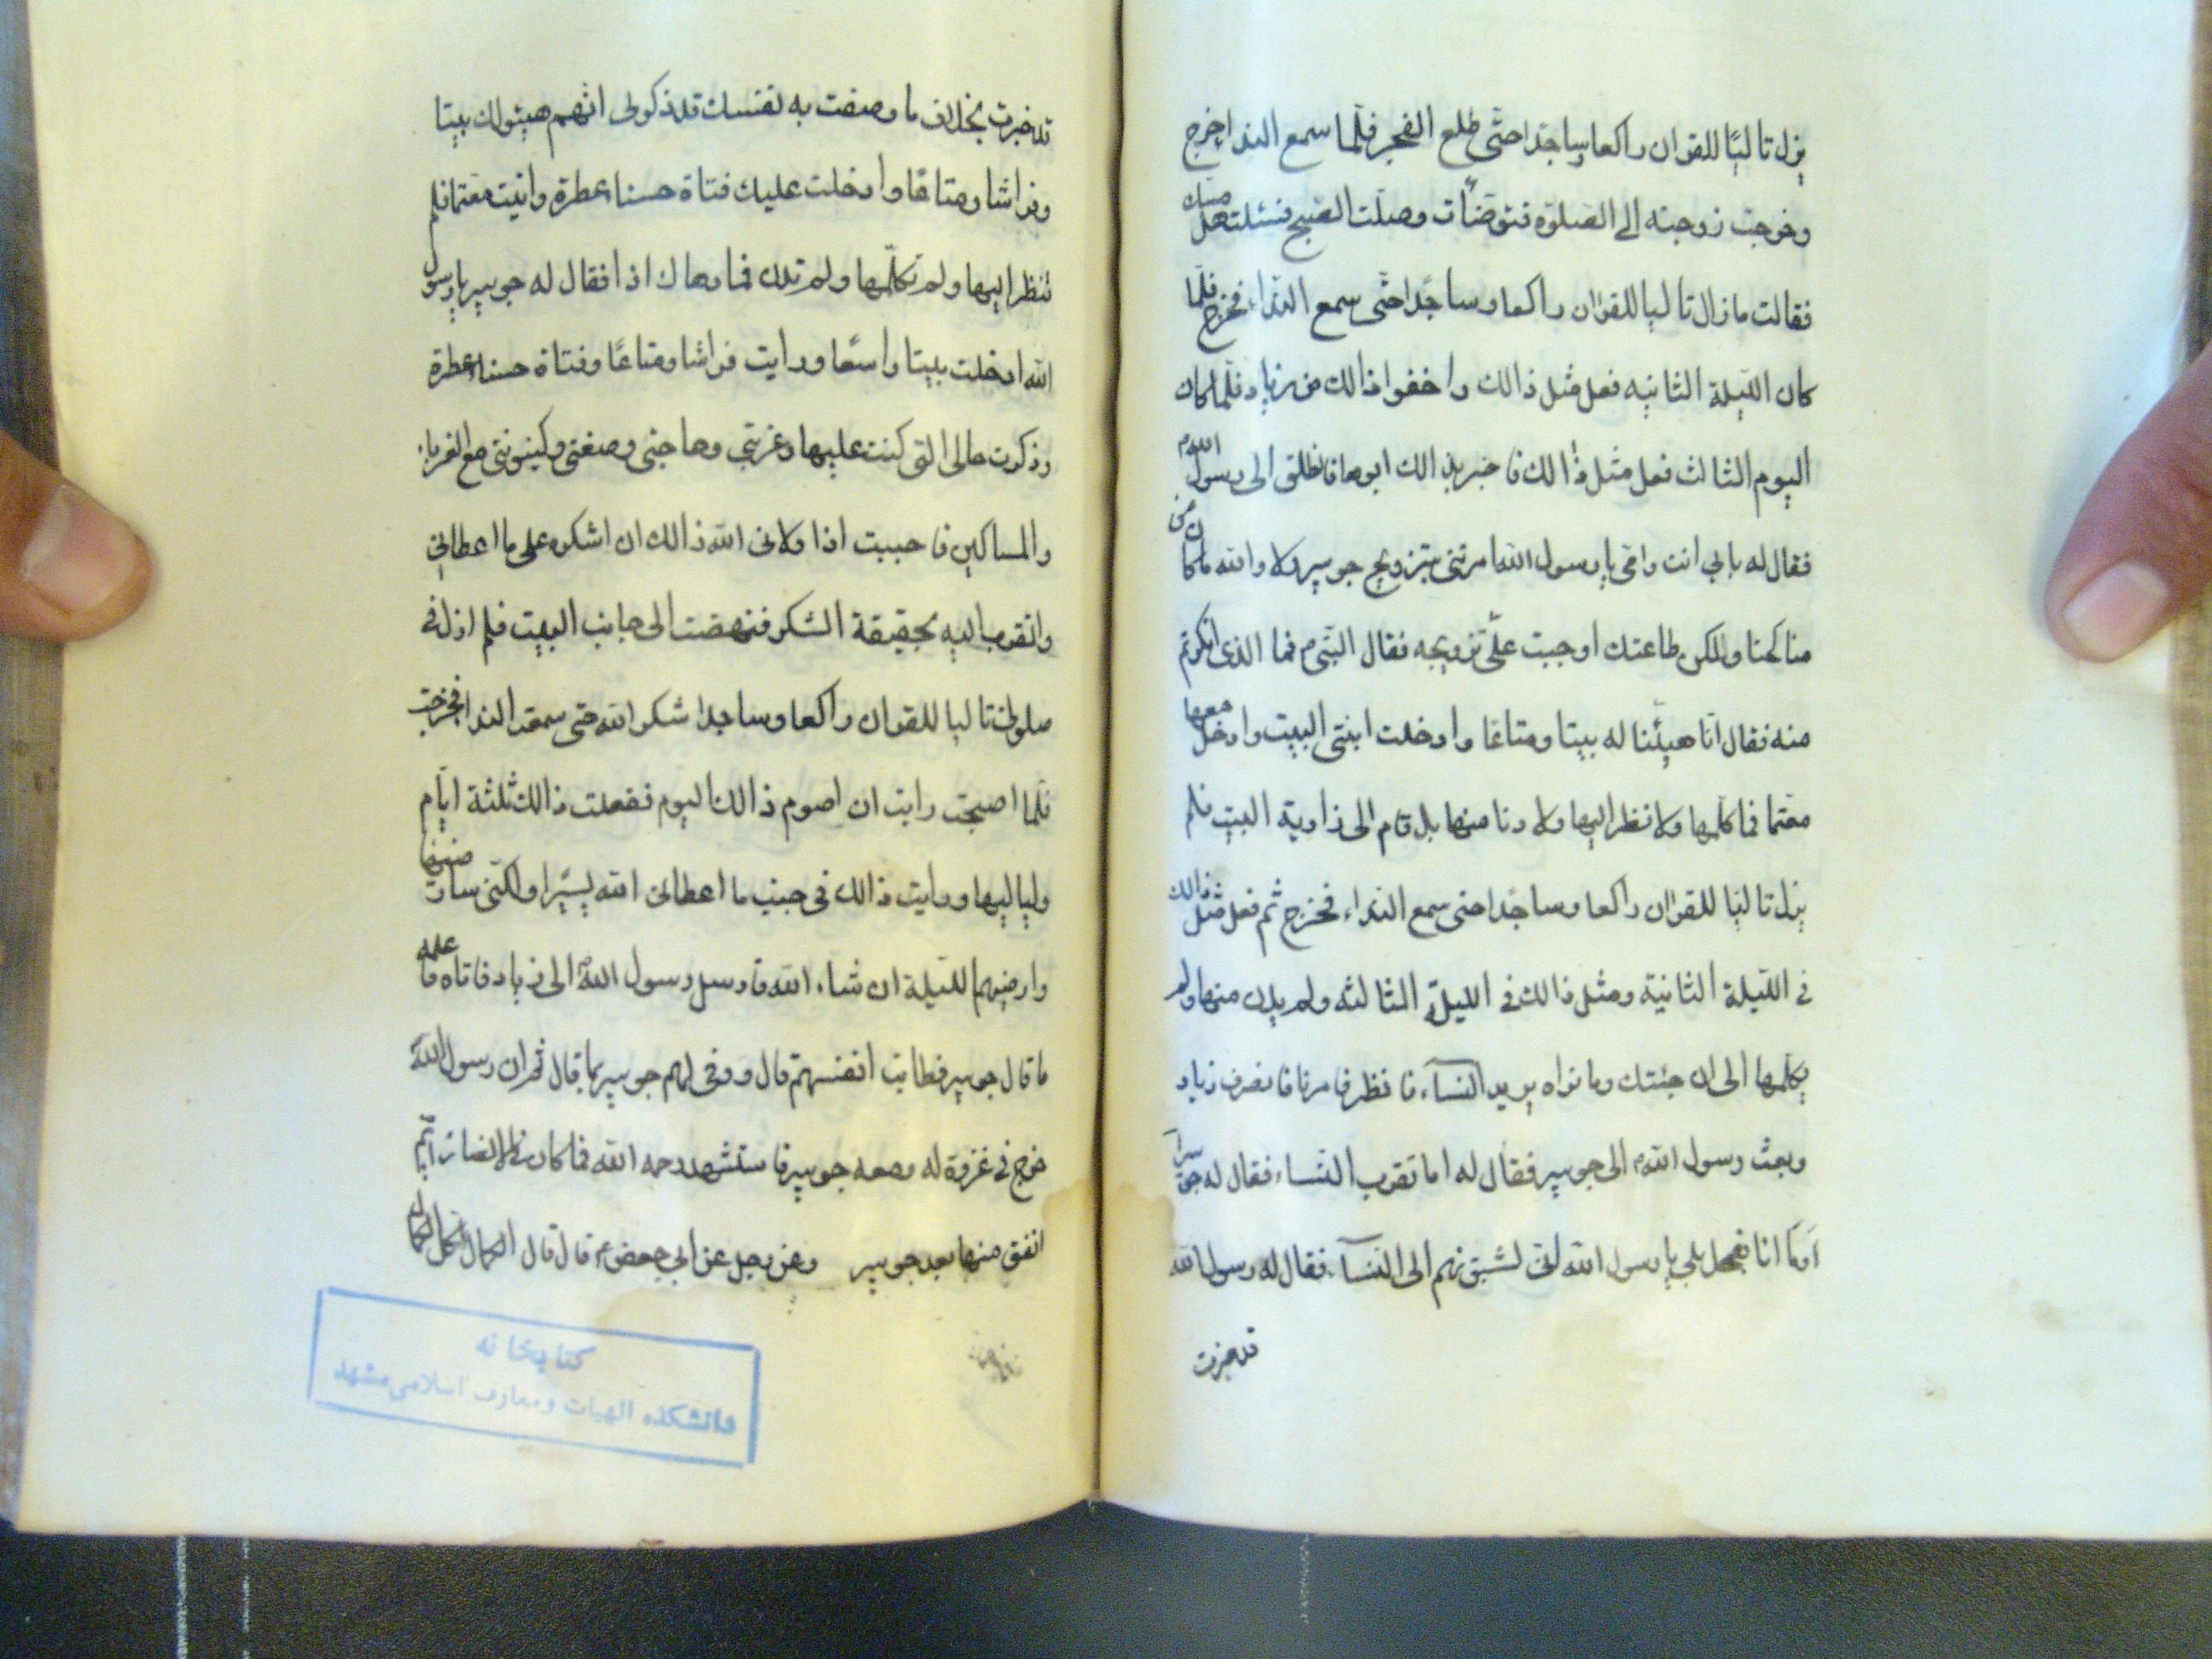 يزل تاليًا للقران راكعا وساجدا حتّى طلع الفجر فلمّا سمع الندا خرج
وخرجت زوجته الى الصلوة فتوضّأت وصلّت الصبح فسئلت هل مسّك
فقالت مازال تاليا للقران راكعا وساجدا حتّى سمع النداء فخرج فلمّا
كان الليلة الثانيه فعل مثل ذالك واخفوا ذالك من زياد فلمّا كان
اليوم الثالث فعل مثل ذالك فاخبر بذالك ابوها فانطلق الى رسول اللهم
فقال له بابي انت وامّى يا رسول الله امرتنى بتزويج جويبر ولا والله ماكان من
مناكحنا ولكن طاعتك اوجبت علىّ تزويجه فقال النبّى م فما الذى انكرتم
منه فقال انّا هيّئنا له بيتا ومتاعًا وادخلت ابنتى البيت وادخل معها
معتما فما كلّمها ولا نظر اليها ولا دنا منها بل قام الى زاوية البيت فلم
يزل تاليًا للقران راكعا وساجدا حتى سمع النداء فخرج ثم فعل مثل ذالك
فى الليلة الثانية ومثل ذالك فى الليلة الثالثه ولم يدن منها ولم
يكلّمها الى ان جئتك وما نراه يريد النسآء فانظر فى امرنا فانصرف زياد
وبعث رسول اللهم الى جويبر فقال له اما تقرب النساء فقال له جويبر
اوما انا بفحل بلى يا رسول الله انى لشبق نهم الى النسآء فقال له رسول الله
قد خبرت
قد خبرت بخلاف ما وصفت به نفسك قد ذكر لى انّهم هيئولك بيتا
وفراشا ومتاعًا وادخلت عليك فتاة حسناء عطرة واتيت معتما فلم
تنظر اليها ولم تكلّمها ولم تدن فما دهاك اذا فقال له جويبر يا رسول
الله ادخلت بيتا واسعًا ورايت فراشا ومتاعًا وفتاة حسناء عطرة
وذكرت حالى التى كنت عليها وغربتي وحاجتى وصنعتى وكينونتى مع الغرباء
والمساكين فاحببت اذا ولانى الله ذالك ان اشكره على ما اعطانى
واتقرب اليه بحقيقة الشكر فنهضت الى جانب البيت فلم ازل فى
صلوتى تاليا للقران راكعا وساجدا شكر الله حتى سمعت الندا فخرجت
فلما اصبحت رايت ان اصوم ذالك اليوم ففعلت ذالك ثلثة ايّام
ولياليها ورايت ذالك فى جنب ما اعطانى الله يسيرا ولكنّى سارضيها
وارضيهم الليلة ان شاء الله فارسل رسول الله الى زياد فاتاه فاعلمه
ما قال جويبر فطابت انفسهم قال ووفى لهم جويبر بما قال ثم ان رسول الله
خرج فى غزوة له ومعه جويبر فاستشهد رحمه الله فما كان فى الانصار ايّم
انفق منها بعد جويبر وعن رجل عن ابي جعفر ع قال قال الكمال كل الكمال
كتابخانه
دانشكده الهيات ومعارف اسلامى مشهد